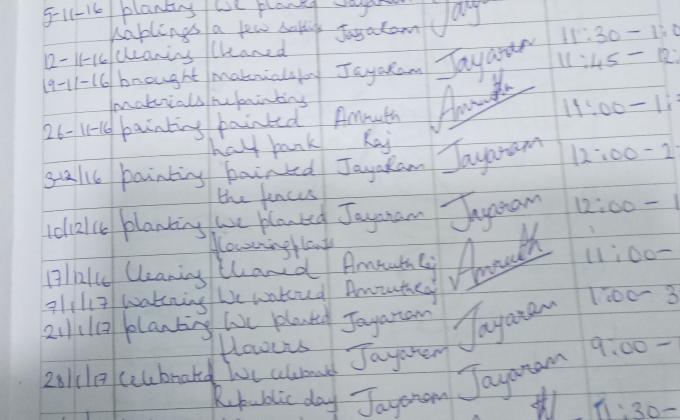 5-11-16 planting we planted Jayaram Jay
saplings a few
12-11-16 cleaning cleaned Jayaram 11:30 - 1:0
19-11-16 brought materials for Jayaram Jayaram 11:45 - 12:
materials repainting
26-11-16 painting painted Amruth Amruth 11:00 - 1:
half park Raj
3/12/16 painting painted Jayaram Jayaram 12:00 - 2
the fences
10/12/16 planting we planted Jayaram Jayaram 12:00 - 1
flowering plants
17/12/16 cleaning cleaned Amruth Raj Amruth 11:00 -
7/1/17 watering we watered Amruth Raj
21/1/17 planting We planted Jayaram Jayaram 1:00 - 3
flowers
28/1/17 celebrated We celebrated Jayaram Jayaram 9:00 -
Republic day Jayaram
:30 -